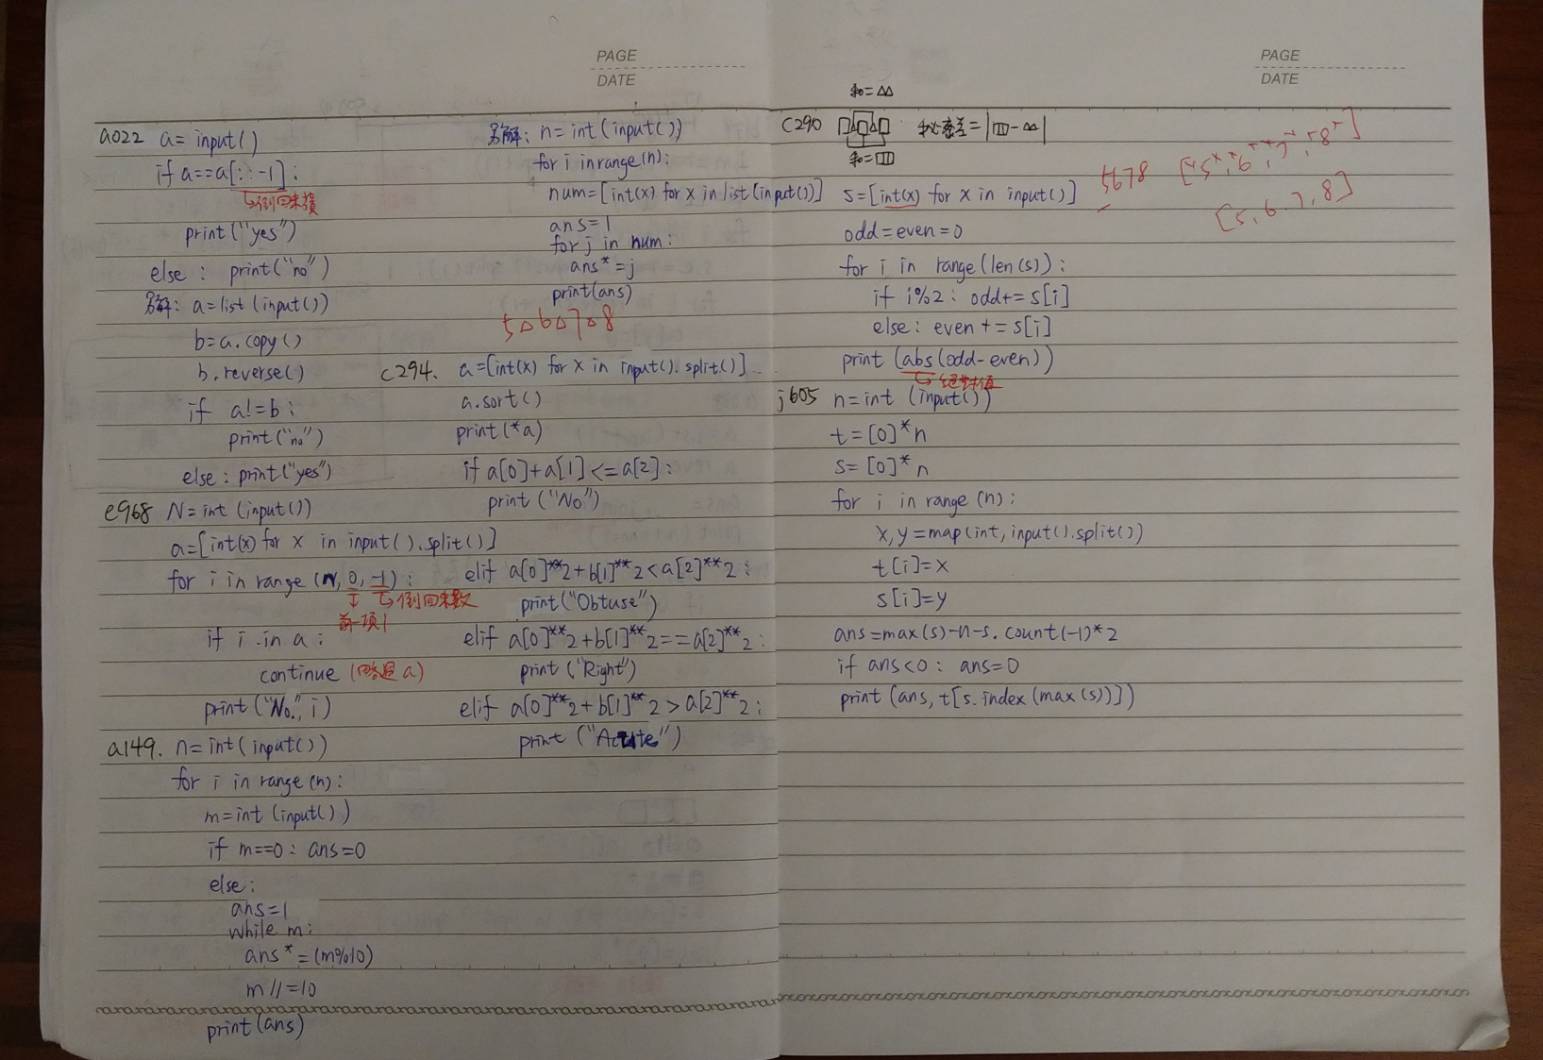 PAGE
DATE
a022 a=input()
if a==a[::-1]:
倒回來摸
print("yes")
else: print("no")
另解: a=list(input())
b=a.copy()
b.reverse()
if a!=b:
print("no")
else: print("yes")
e968 N=int(input())
a=[int(x) for x in input().split()]
for i in range(N,0,-1):
倒回來數
前一項
if i in a:
continue (略過a)
print("No.",i)
a149. n=int(input())
for i in range(n):
m=int(input())
if m==0: ans=0
else:
ans=1
while m:
ans*=(m%10)
m//=10
print(ans)
另解: n=int(input())
for i in range(n):
num=[int(x) for x in list(input())]
ans=1
for j in num:
ans*=j
print(ans)
5△6△7△8
c294. a=[int(x) for x in input().split()]
a.sort()
print(*a)
if a[0]+a[1]<=a[2]:
print("No")
elif a[0]**2+b[1]**2<a[2]**2:
print("Obtuse")
elif a[0]**2+b[1]**2==a[2]**2:
print("Right")
elif a[0]**2+b[1]**2>a[2]**2:
print("Acute")
PAGE
DATE
和=△△
c290 □△□△□ 秘密差=|□□-△△|
和=□□
s=[int(x) for x in input()]
5678 ["5","6","7","8"]
[5,6,7,8]
odd=even=0
for i in range(len(s)):
if i%2: odd+=s[i]
else: even+=s[i]
print(abs(odd-even))
絕對值
j605 n=int(input())
t=[0]*n
s=[0]*n
for i in range(n):
x,y=map(int,input().split())
t[i]=x
s[i]=y
ans=max(s)-n-s.count(-1)*2
if ans<0: ans=0
print(ans,t[s.index(max(s))])